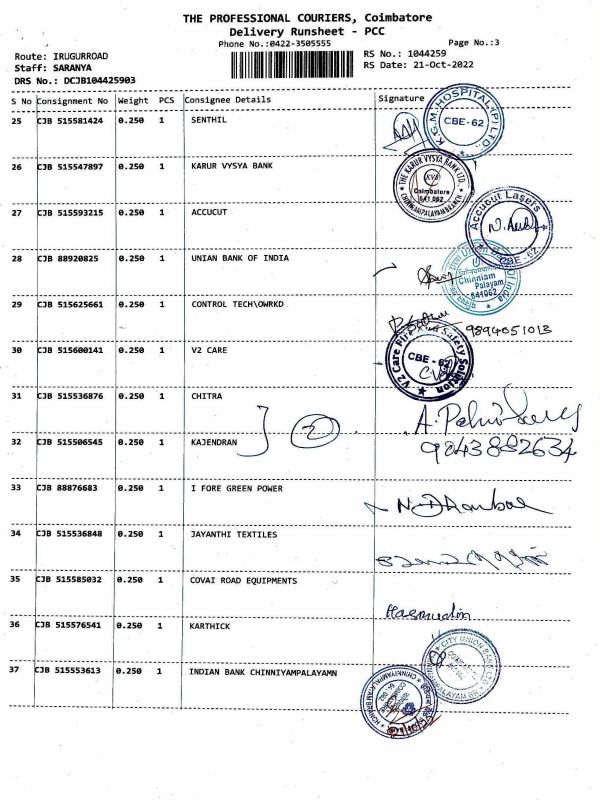 THE PROFESSIONAL COURIERS, Coimbatore
Delivery Runsheet - PCC
Phone No.:0422-3505555
Page No.:3
Route: IRUGURROAD
RS No.: 1044259
Staff: SARANYA
RS Date: 21-Oct-2022
DRS No.: DCJB104425903
S No Consignment No Weight PCS Consignee Details Signature
25 CJB 515581424 0.250 1 SENTHIL
K.G.M. HOSPITAL (P) LTD.
CBE-62
26 CJB 515547897 0.250 1 KARUR VYSYA BANK
THE KARUR VYSYA BANK LTD.
KVB
Coimbatore
641 062
CHINNIAMPALAYAM BRANCH
27 CJB 515593215 0.250 1 ACCUCUT
Accucut Lasers
CBE - 62
28 CJB 88920825 1 0.250 UNIAN BANK OF INDIA
Chinniam
Palayam
641062
29 CJB 515625661 0.250 1 CONTROL TECH\OWRKD
9894051013
30 CJB 515600141 0.250 1 V2 CARE
V2 Care Fire And Safety Solution
CBE - 62
31 CJB 515536876 0.250 1 CHITRA
32 CJB 515506545 0.250 1 KAJENDRAN
2
9843882634
33 CJB 88876683 0.250 1 I FORE GREEN POWER
34 CJB 515536848 0.250 1 JAYANTHI TEXTILES
35 CJB 515585032 0.250 1 COVAI ROAD EQUIPMENTS
36 CJB 515576541 0.250 1 KARTHICK
CITY UNION BANK LTD.
37 CJB 515553613 0.250 1 INDIAN BANK CHINNIYAMPALAYAMN